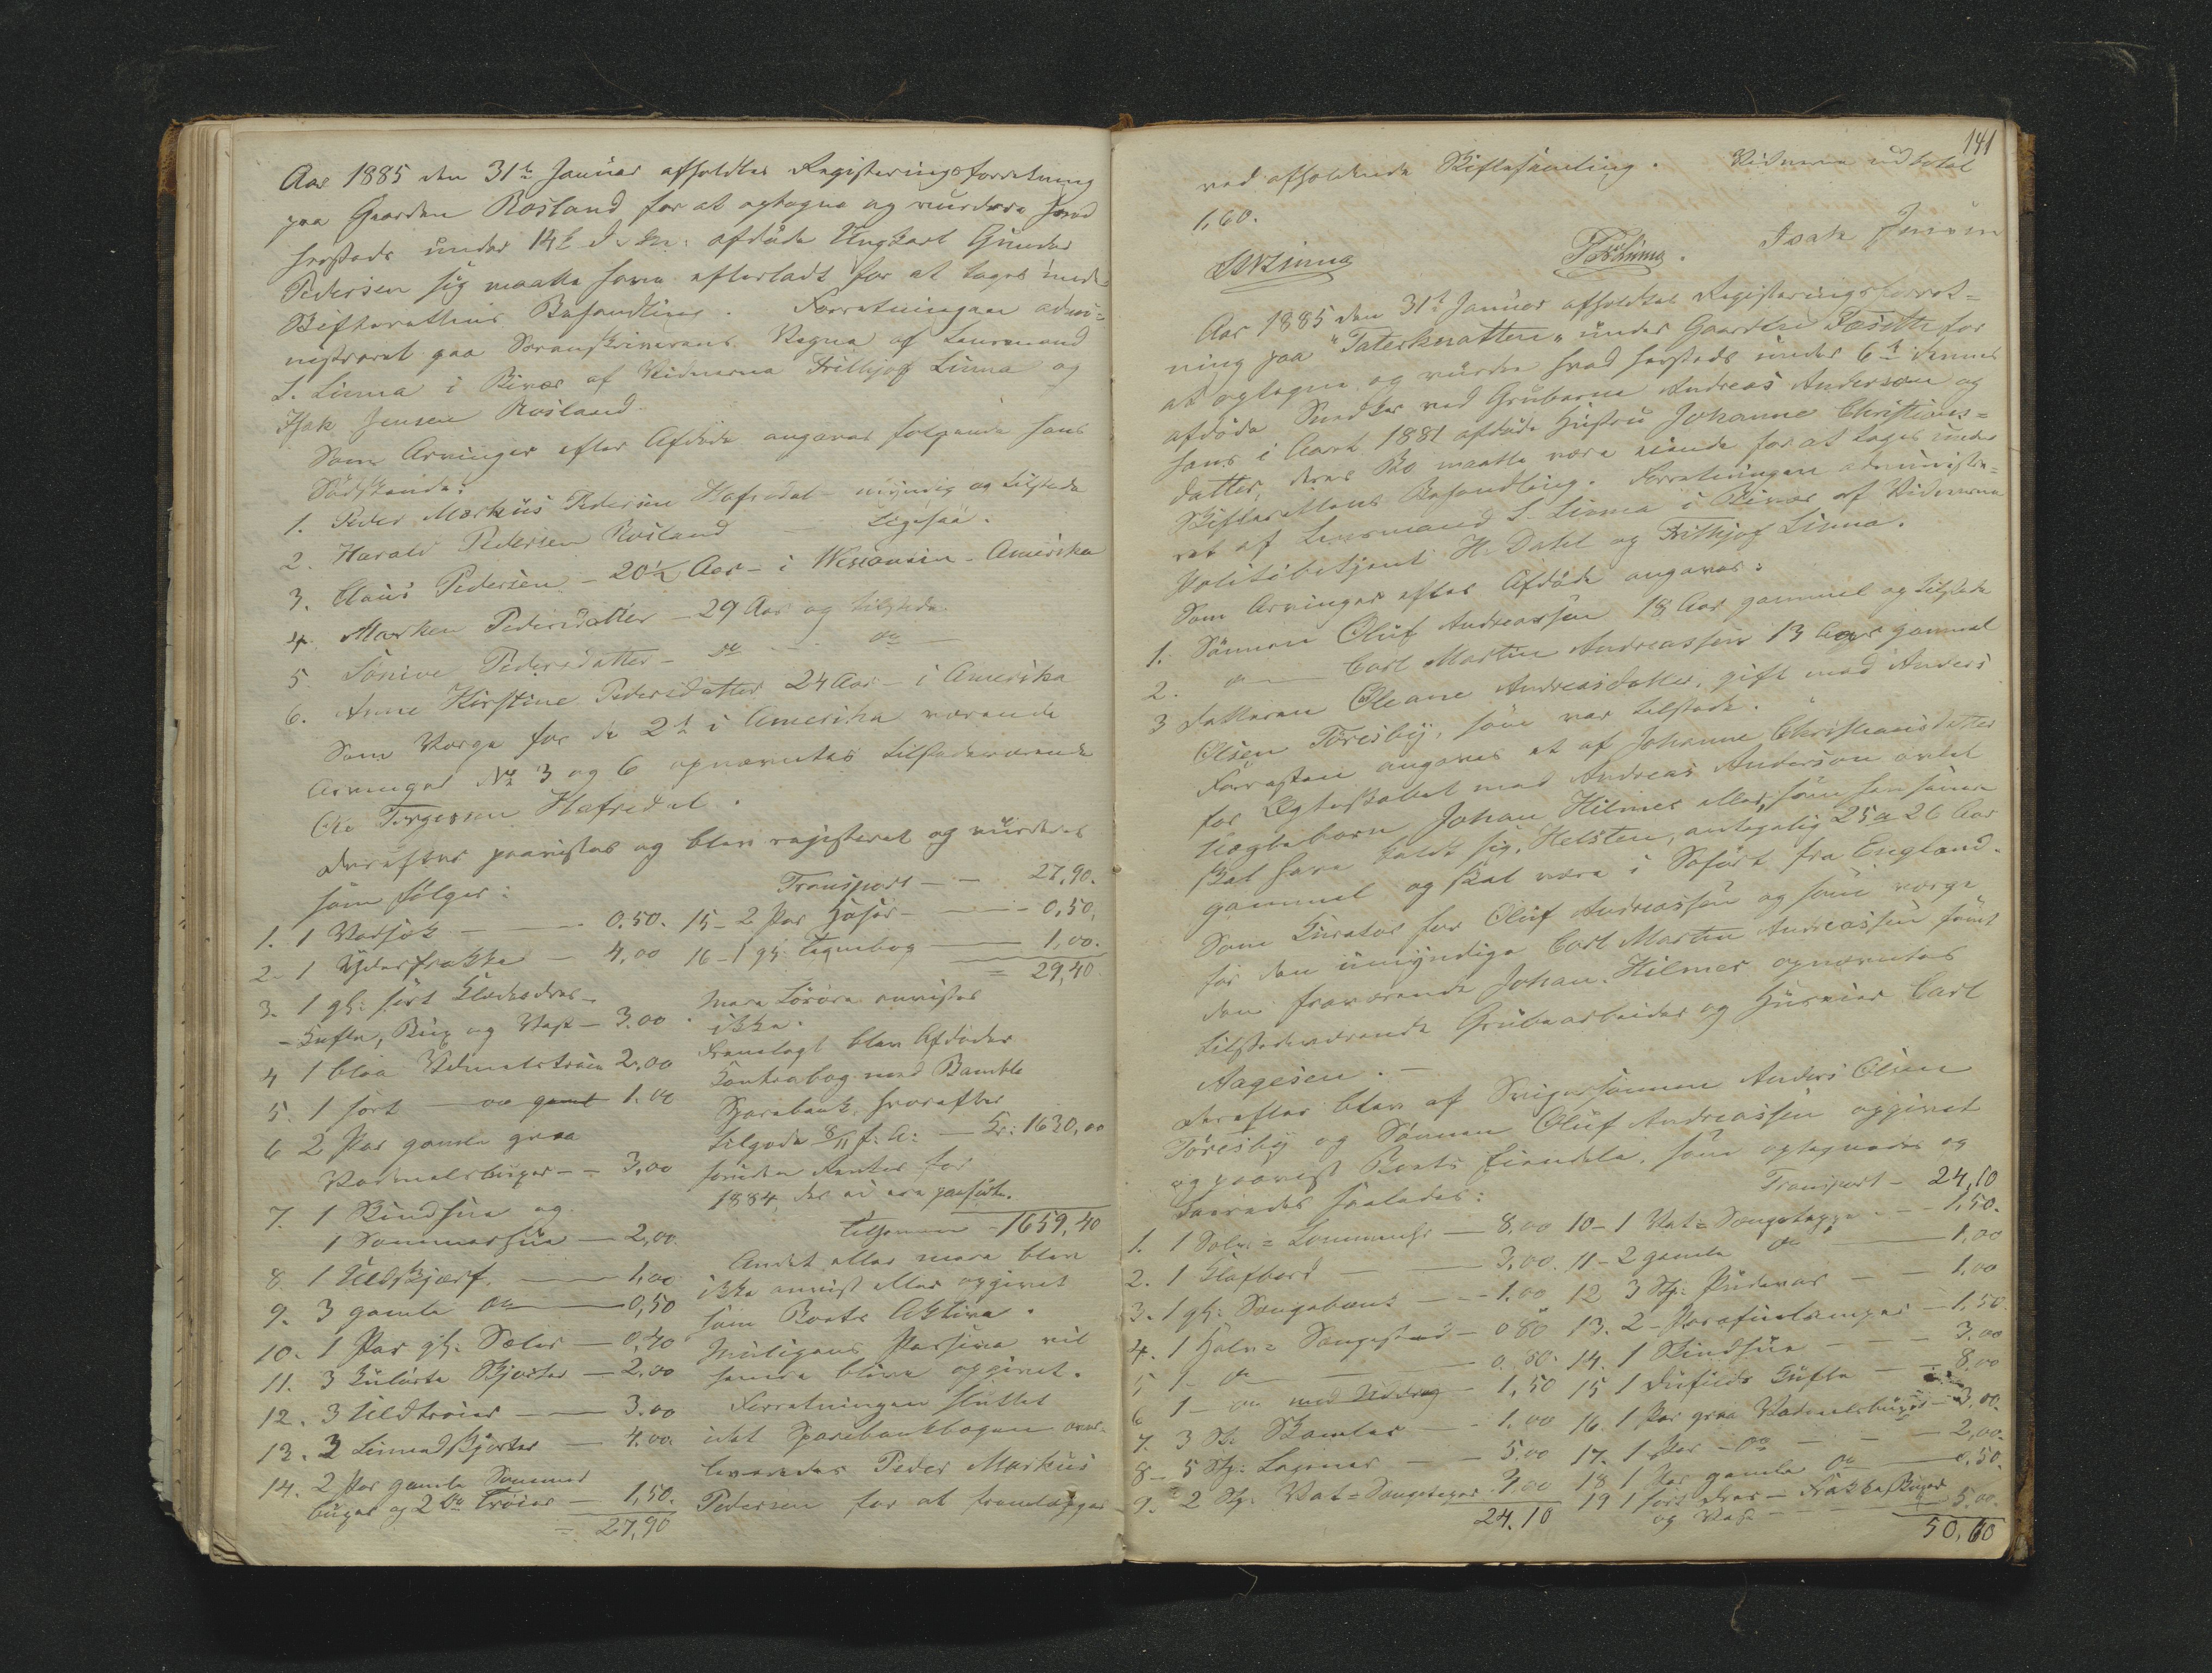 Aar 1885 den 31te Januar afholdtes Registeringsforretning
paa Gaarden Rosland for at optegne og vurdere hvad
hersteds under 14de d. M. afdøde Ungkarl Gunder
Pedersen sig maatte have efterladt for at tages under
Skifterettens Behandling. Forretningen admi-
nistreret paa Sorenskriverens Vegne af Lensmand
S. Linna i Bivær af Vidnerne Frithjof Linna og
Isak Jensen Rosland.
Som Arvinger efter Afdøde angaves følgende hans
Sødskende:
1. Peder Markus Pedersen Hafredal – myndig og tilstede
2. Harald Pedersen Rosland – ligesaa.
3. Claus Pedersen – 20½ Aar – i Wisconsin – Amerika
4. Marken Pedersdatter – 29 Aar og tilstede
5 Pedersdatter – do – do –
6. Anne Kirstine Pedersdatter 24 Aar – i Amerika
Som Verge for de 2de i Amerika værende
Arvinger No 3 og 6 opnævntes tilstedeværende
Ole Hafredal.
Derefter paavistes og blev registeret og vurderet
som følger:
1. 1 – 0.50.
2. 1 Yderfrakke – 4,00
3. 1 gl. sort Klædesdres –
– Kufte, Bux og Vest – 3.00
4 1 blaa Vadmelstrøie 2,00
5. 1 sort – do gaml 1.00
6 2 Par gamle graa
Vadmelsbuxer – – 3,00
7. 1 Skindhue og
1 Sommerhue – 2,00.
8. 1 Uldskjærf. – 1,00
9. 3 gamle do – 0,50
10. 1 Par gl. Seler – 0,40
11. 3 kulørte Skjorter – 2.00
12. 3 Uldtrøier – 3.00
13. 3 Linnedskjorter – 4.00.
14. 2 Par gamle Sommer
buxer og 2 do Trøier – 1,50.
= 27,90
Transport – – 27,90.
15 – 2 Par Hoser – 0,50.
16 – 1 gl. Tegnebog – 1,00.
= 29,40
Mere Løsøre anvistes
ikke.
Fremlagt blev Afdødes
Contrabog med Bamble
Sparebank, hvorefter
tilgode 8/11 f. A: – Kr: 1630,00
foruden Renter for
1884, der ei ere paaførte.
Tilsammen – 1659,40
Andet eller mere blev
ikke anvist eller opgivet
som Boets Aktiva.
Muligens Passiva vil
senere blive opgivet.
Forretningen sluttet
idet Sparebankbogen over-
leveredes Peder Markus
Pedersen for at fremlægges
141
ved afholdende Skiftesamling. Vidnerne udbetal
1,60.
SLinna F. Linna. Isak Jensen
Aar 1885 den 31te Januar afholdtes Registeringsforret-
ning paa "Taterknatten" under Gaarden for
at optegne og vurdere hvad hersteds under 6te dennes
afdøde Smed ved Gruberne Andreas Anderson og
hans i Aaret 1881 afdøde Hustru Johanne Christians-
datter, deres Bo maatte være eiende for at tages under
Skifterettens Behandling. Forretningen administre-
ret af Lensmand S. Linna i Bivær af Vidnerne
Politibetjent H. Dahl og Frithjof Linna.
Som Arvinger efter Afdøde angaves:
1. Sønnen Oluf Andreassen 18 Aar gammel og tilstede
2. do – Carl Martin Andreassen 13 Aar gammel
3 Datteren Oleane Andreasdatter, gift med Anders
Olsen Toresby, som var tilstede.
Forresten angaves at af Johanne Christiansdatter
før Egteskabet med Andreas Anderson avlet
Uægtebarn Johan Hilmer eller, som han senere
skal have kaldt sig, Helsten, antagelig 25 a 26 Aar
gammel og skal være i Søfart fra England.
Som Curator for Oluf Andreassen og som verge
for den umyndige Carl Martin Andreassen samt
den fraværende Johan Hilmer opnævntes
tilstedeværende Grubearbeider og Husmand Carl
Aagesen. –
Derefter blev af Svigersønnen Anders Olsen
Toresby og Sønnen Oluf Andreassen opgivet
og paavist Boets Eiendele, som optegnedes og
vurderedes saaledes:
1. 1 Sølv = Lommeuhr – 8,00
2. 1 Klafbord – 3,00.
3. 1 gl: Sengebænk – – 1.00
4. 1 Halv = Sengested – 0 80
5 1 – do – 0. 80.
6 1 – do med Uddrag – 1,50
7. 3 St: Skamler – 1.00
8 – 5 St: Lagener – – 5.00
9. 2 St: Vat = Sengetepper 3.00
24.10
Transport – 24,10
10 – 1 Vat = Sengetæppe – – 1,50.
11 – 2 gamle do – 1,00
12 3 St: Pudevar – – 1,00
13. 2 – Parafinlamper – 1,50.
14. 1 Skindhue – – – 3.00
15 1 Kufte – – 8,00
16. 1 Par graa Vadmelsbuxer – 3,00.
17. 1 Par – do – – – 2,00.
18 1 Par gamle do – 0,50.
19 1 sort dres – Frakke, Buxer
og Vest – – – 5.00.
50,60